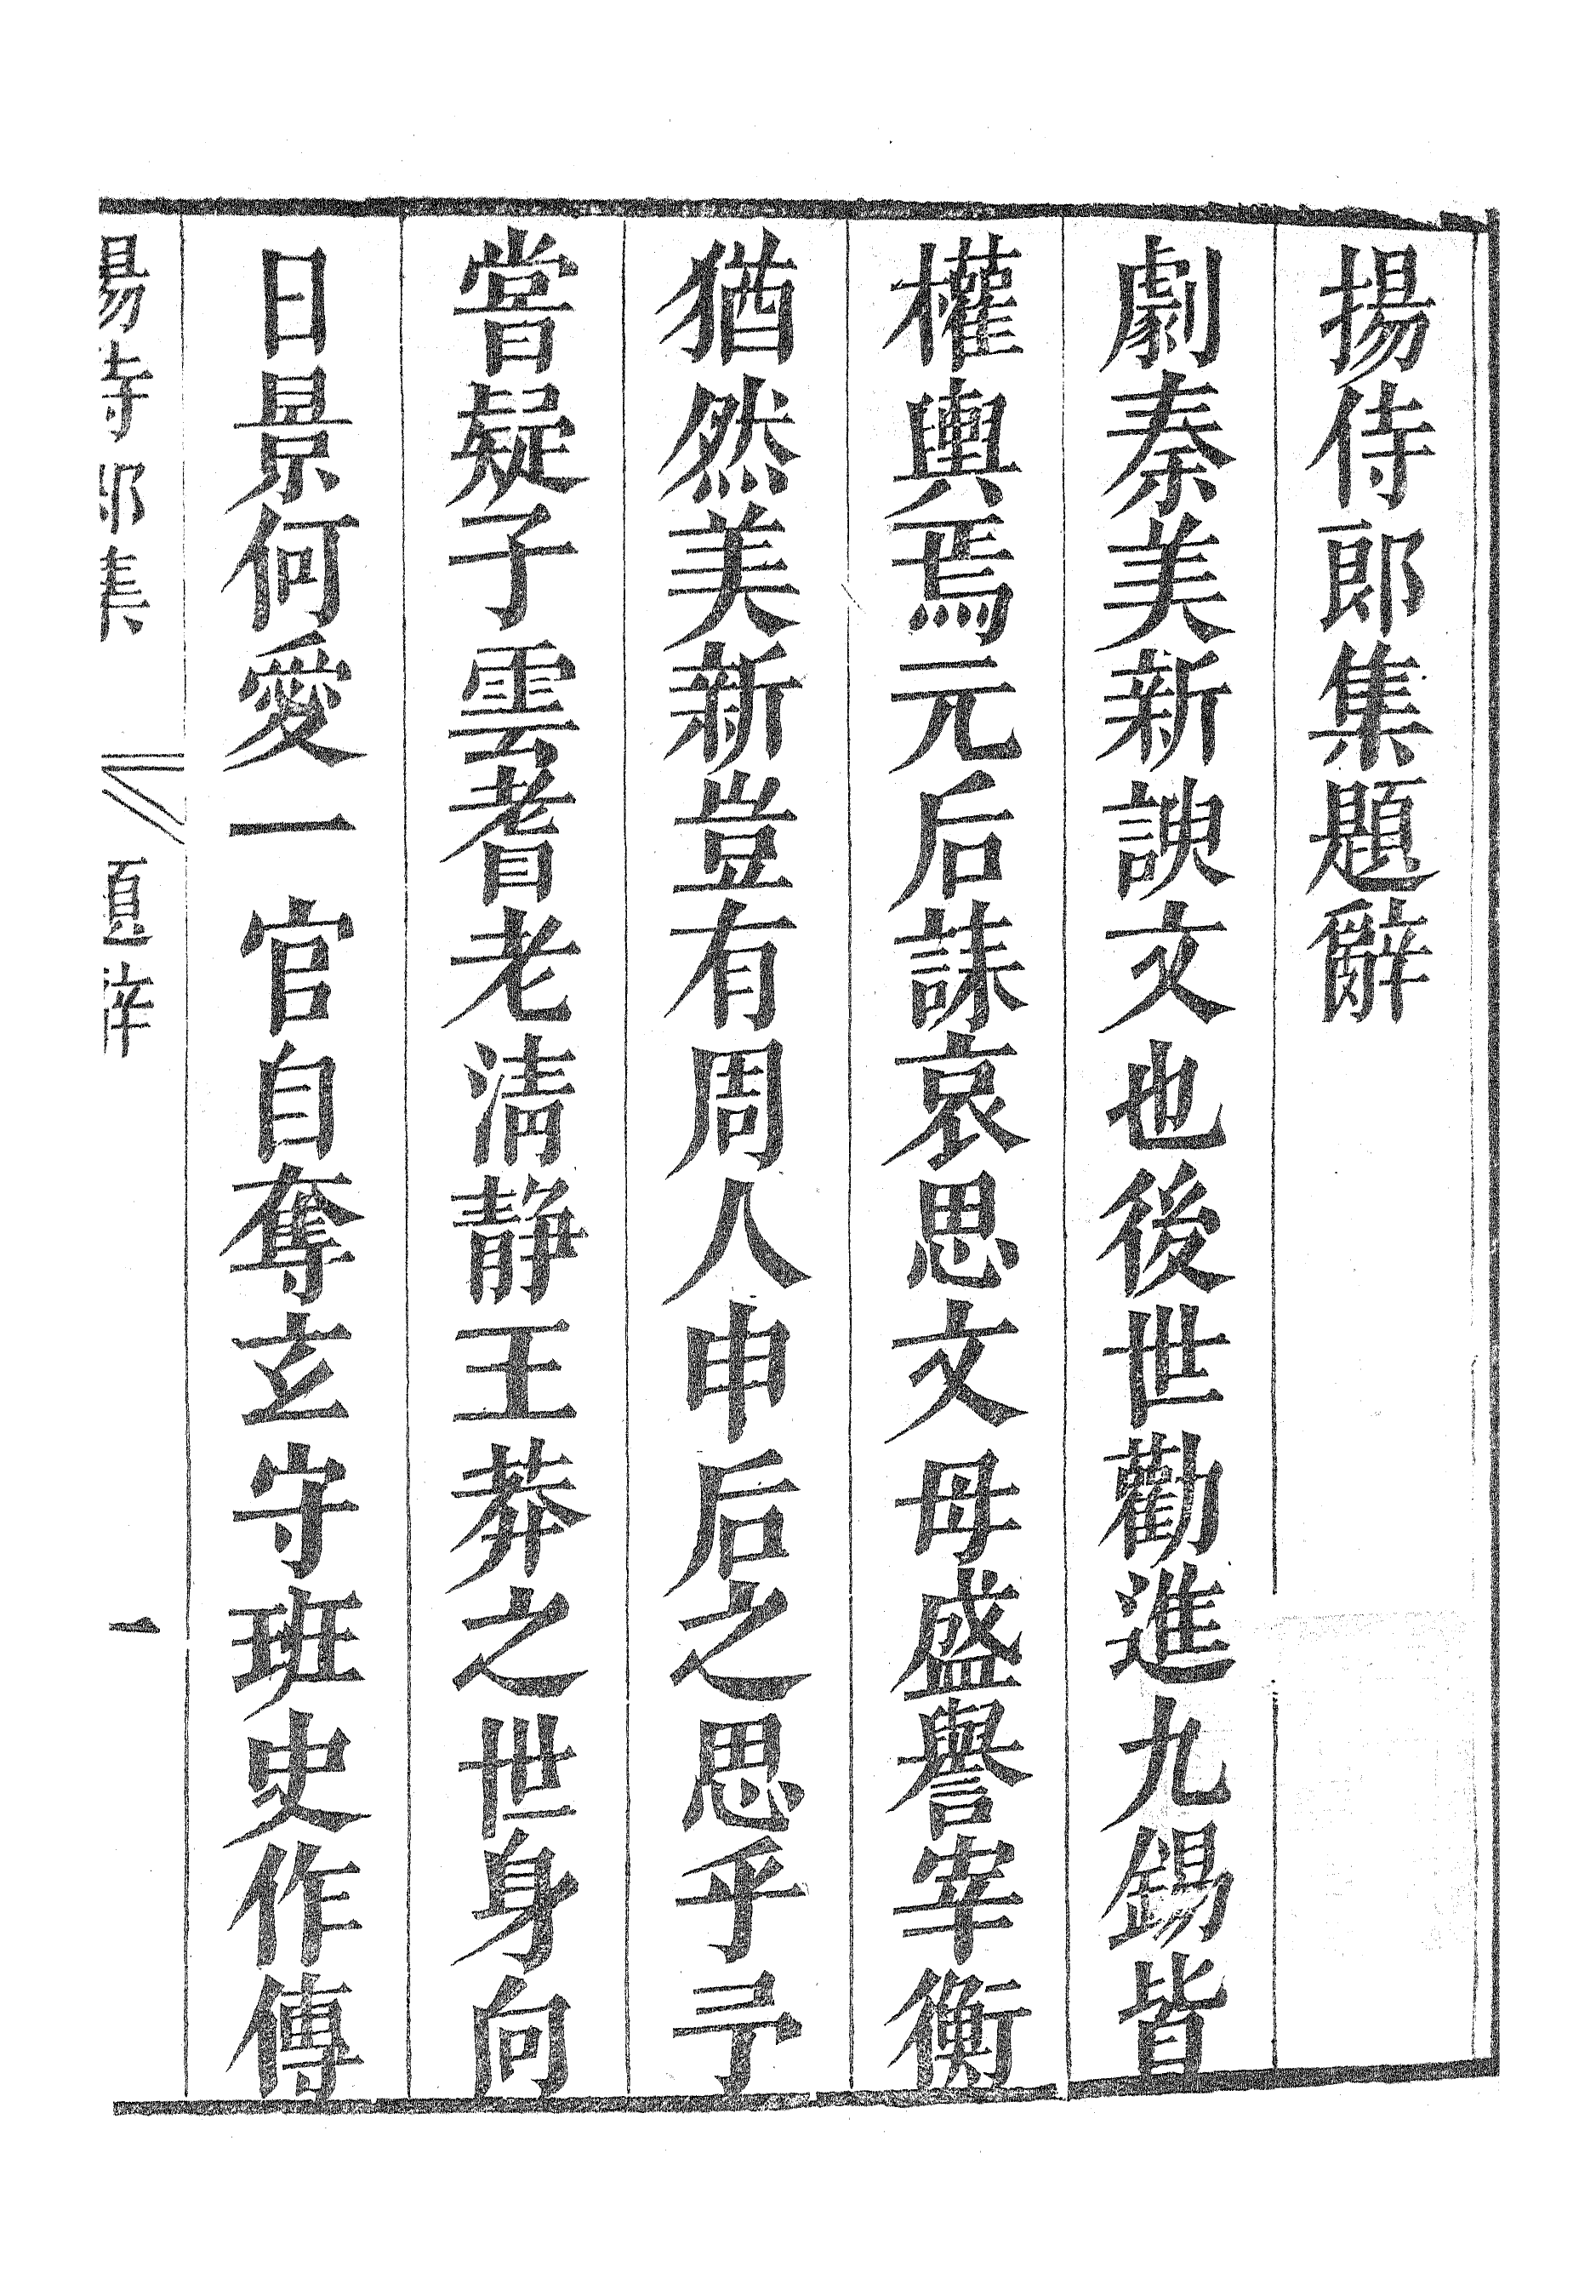 揚侍郎集題辭
劇秦美新諛文也後世勸進九錫皆
權輿焉元后誄哀思文母盛譽宰衡
猶然美新豈有周人申后之思乎予
嘗疑子雲耆老清靜王莽之世身向
日景何愛一官自奪玄守班史作傳
揚侍郎集 題辭 一